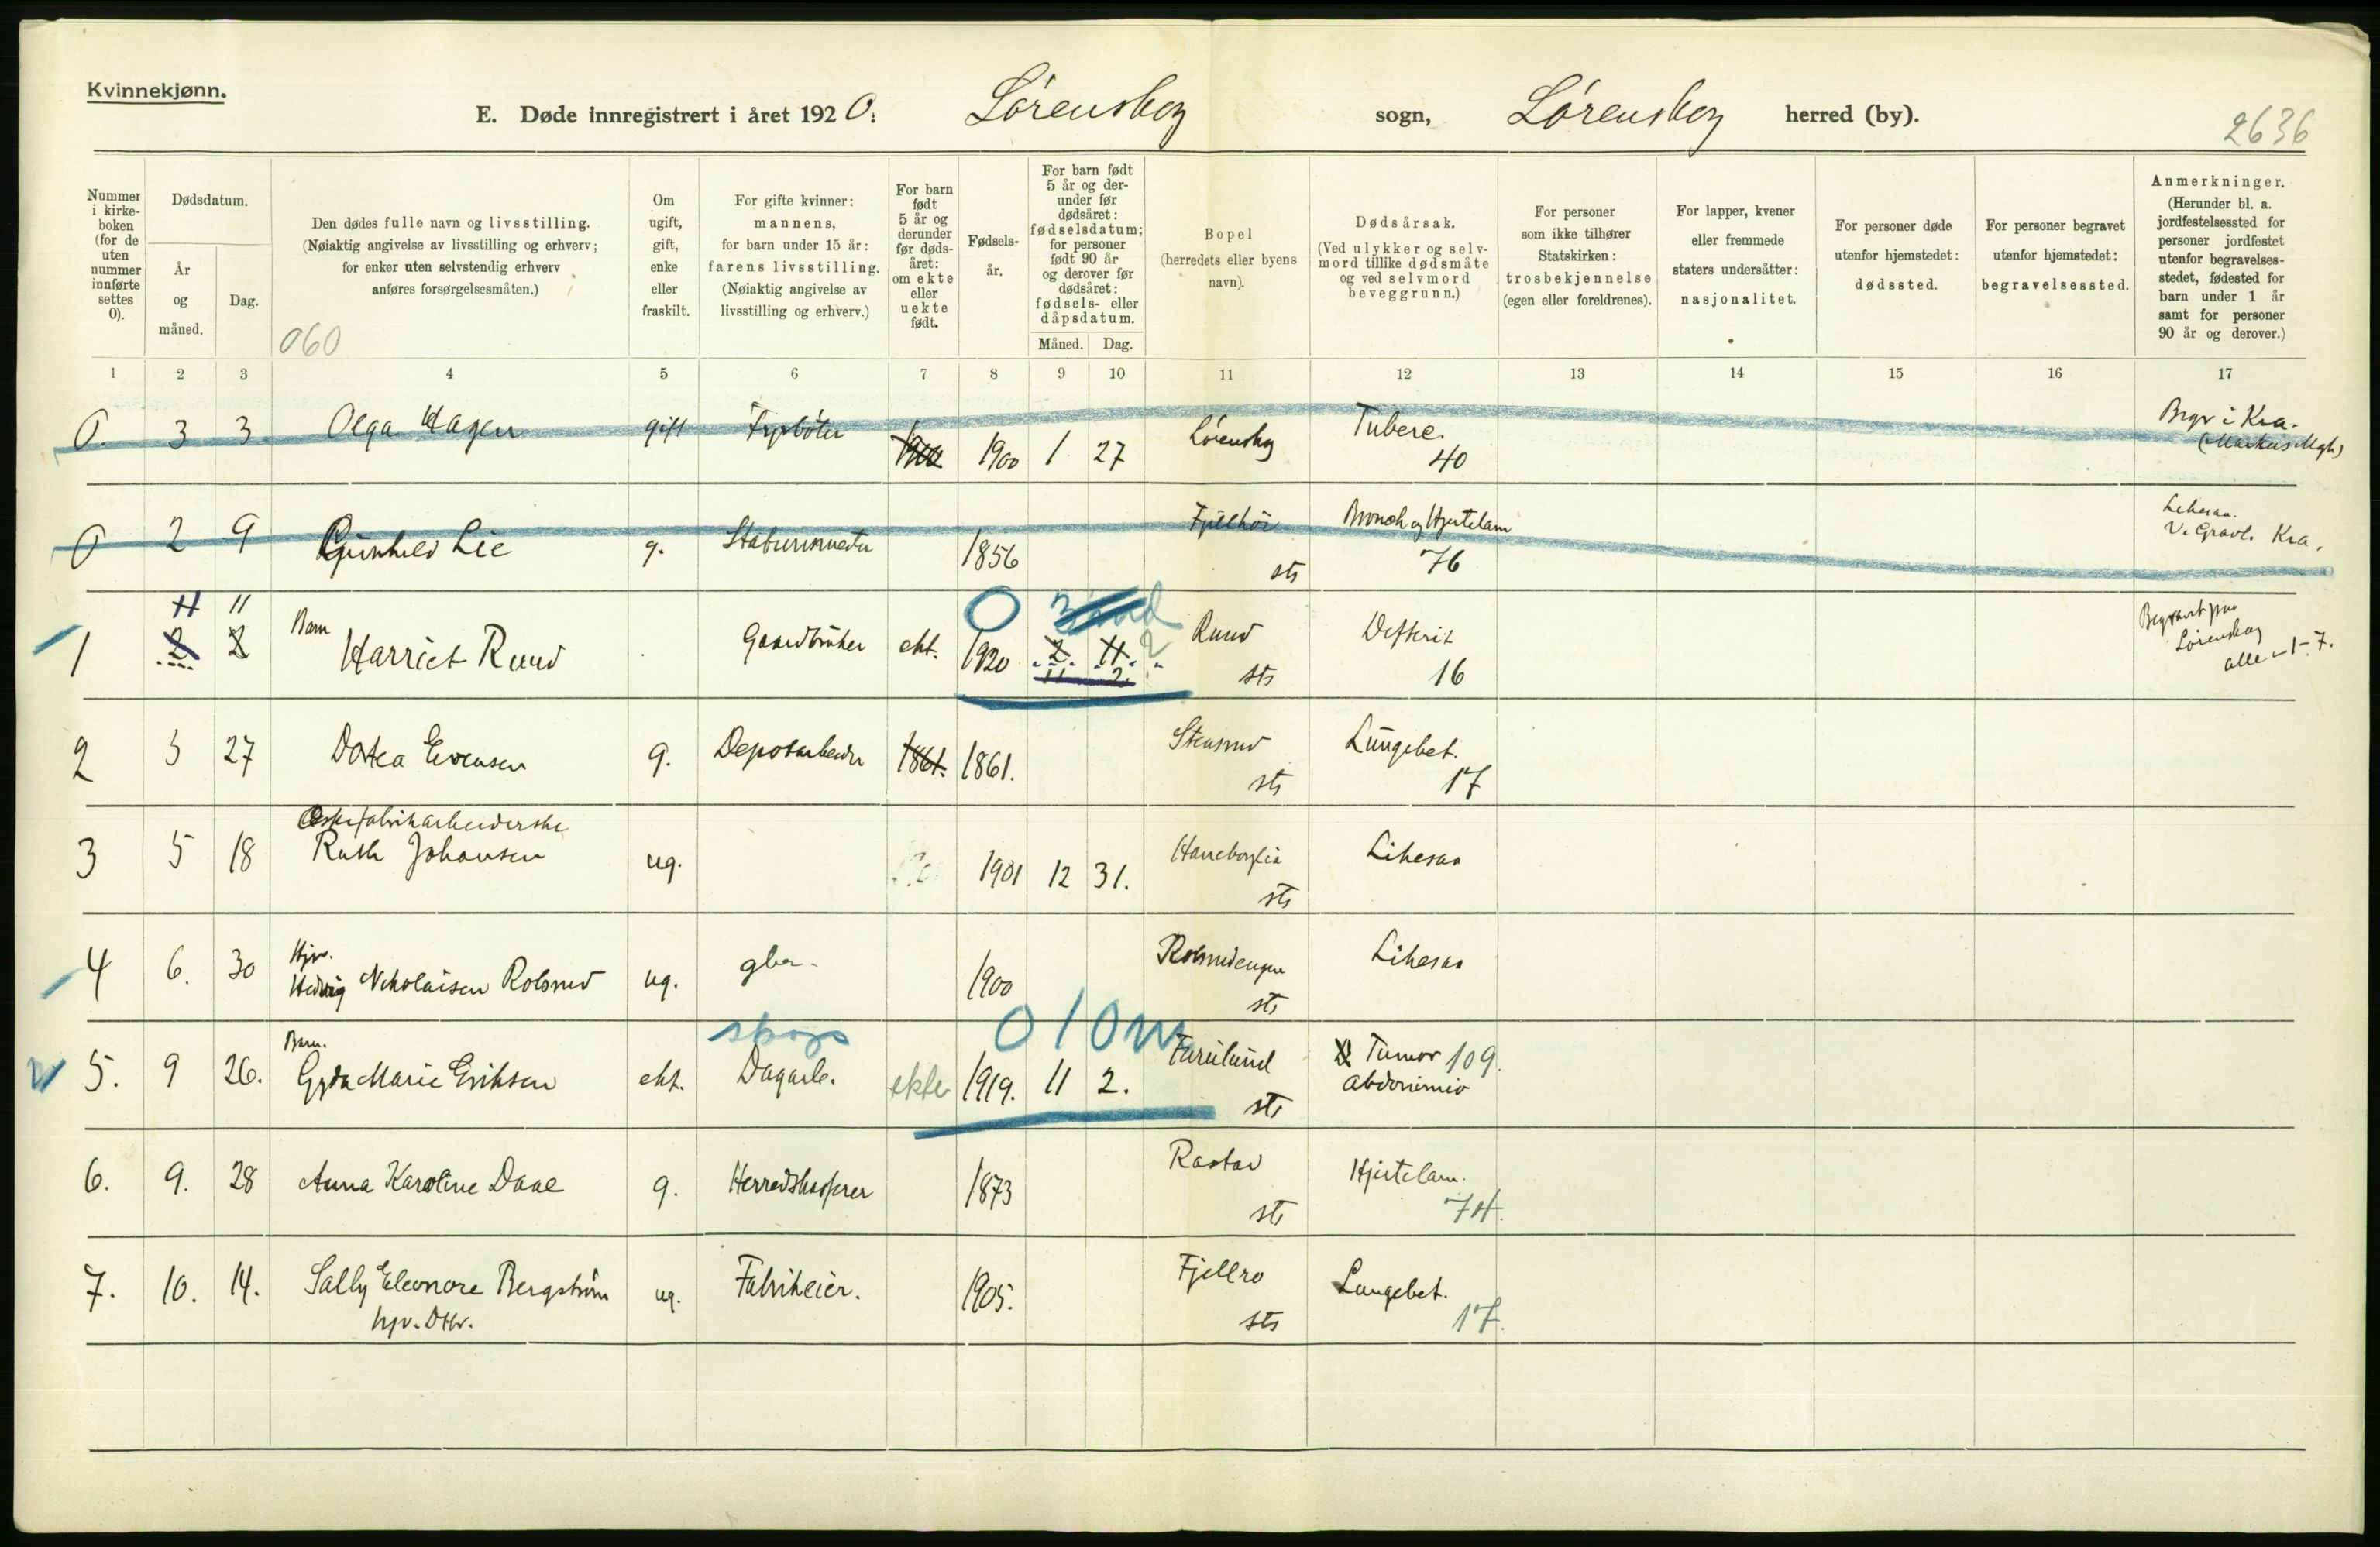 Kvinnekjønn.
E. Døde innregistrert i året 1920: Lørenskog sogn, Lørenskog herred (by).
2636
Nummer i kirke-boken (for de uten nummer innførte settes 0).
Dødsdatum.
År og måned.
Dag.
Den dødes fulle navn og livsstilling.
(Nøiaktig angivelse av livsstilling og erhverv;
for enker uten selvstendig erhverv
anføres forsørgelsesmåten.)
060
Om ugift, gift, enke eller fraskilt.
For gifte kvinner: mannens, for barn under 15 år: farens livsstilling. (Nøiaktig angivelse av livsstilling og erhverv.)
For barn født 5 år og derunder før døds-året: om ekte eller uekte født.
Fødsels-år.
For barn født 5 år og der-under før dødsåret: fødselsdatum; for personer født 90 år og derover før dødsåret: fødsels- eller dåpsdatum.
Måned. Dag.
Bopel (herredets eller byens navn).
Dødsårsak. (Ved ulykker og selv-mord tillike dødsmåte og ved selvmord beveggrunn.)
For personer som ikke tilhører Statskirken: trosbekjennelse (egen eller foreldrenes).
For lapper, kvener eller fremmede staters undersåtter: nasjonalitet.
For personer døde utenfor hjemstedet: dødssted.
For personer begravet utenfor hjemstedet: begravelsessted.
Anmerkninger. (Herunder bl. a. jordfestelsessted for personer jordfestet utenfor begravelses-stedet, fødested for barn under 1 år samt for personer 90 år og derover.)
1 2 3 4 5 6 7 8 9 10 11 12 13 14 15 16 17
0. 3 3 Olga Hagen gift 1900 1 27 Lørenskog Tuberc. 40 Begr i Kra.
0 2 9 Lie g. 1856 Fjellhöi sts Bronch og Hjertelam 76 V. Gravl. Kra.
1 11 11 2 2 Barn Harriet Ruud Gaardbruker ekt. 1920 0 2 11 11 2 Ruud sts Difterit 16 Lørenskog alle 1-7.
2 3 27 Dortea Evensen g. Depotarbeider 1861. 1861. Stensrud sts Lungebet. 17
3 5 18 Æskefabrikarbeiderske
Ruth Johansen ug. 1901 12 31. sts
4 6. 30 Hjv.
Hedvig Nikolaisen Robsrud ug. gbr. 1900 sts
5. 9 26. Barn.
Gyda Marie Eriksen ekt. skogs Dagarb. ekte 1919. 11 2. 0 10 m Furulund sts Tumor 109. abdominis
6. 9. 28 Anna Karoline Daae g. Herredskasserer 1873 Rastad sts Hjertelam. 74.
7. 10. 14. Sally Eleonore Bergström
hjv. Dttr. ug. Fabrikeier. 1905. Fjellro sts Lungebet. 17.